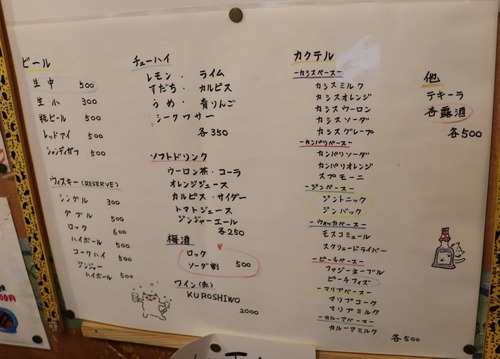 ビール
生中 500
生小 300
瓶ビール 500
レッドアイ 500
シャンディガフ 500
ウィスキー(RESERVE)
シングル 300
ダブル 500
ロック 600
ハイボール 500
コークハイ 500
ジンジャー
ハイボール 500
チューハイ
レモン・ライム
すだち・カルピス
うめ・青りんご
シークワサー
各350
ソフトドリンク
ウーロン茶・コーラ
オレンジジュース
カルピス・サイダー
トマトジュース
ジンジャーエール
各250
梅酒
ロック
ソーダ割 500
ワイン(赤)
KUROSHIWO
2000
カクテル
-カシスベース-
カシスミルク
カシスオレンジ
カシスウーロン
カシスソーダ
カシスグレープ
-カンパリベース-
カンパリソーダ
カンパリオレンジ
スプモーニ
-ジンベース-
ジントニック
ジンバック
-ウォッカベース-
モスコミュール
スクリュードライバー
-ピーチベース-
ファジーネーブル
ピーチフィズ
-マリブベース-
マリブコーク
マリブミルク
-カルーアベース-
カルーアミルク
各500
他
テキーラ
杏露酒
各500